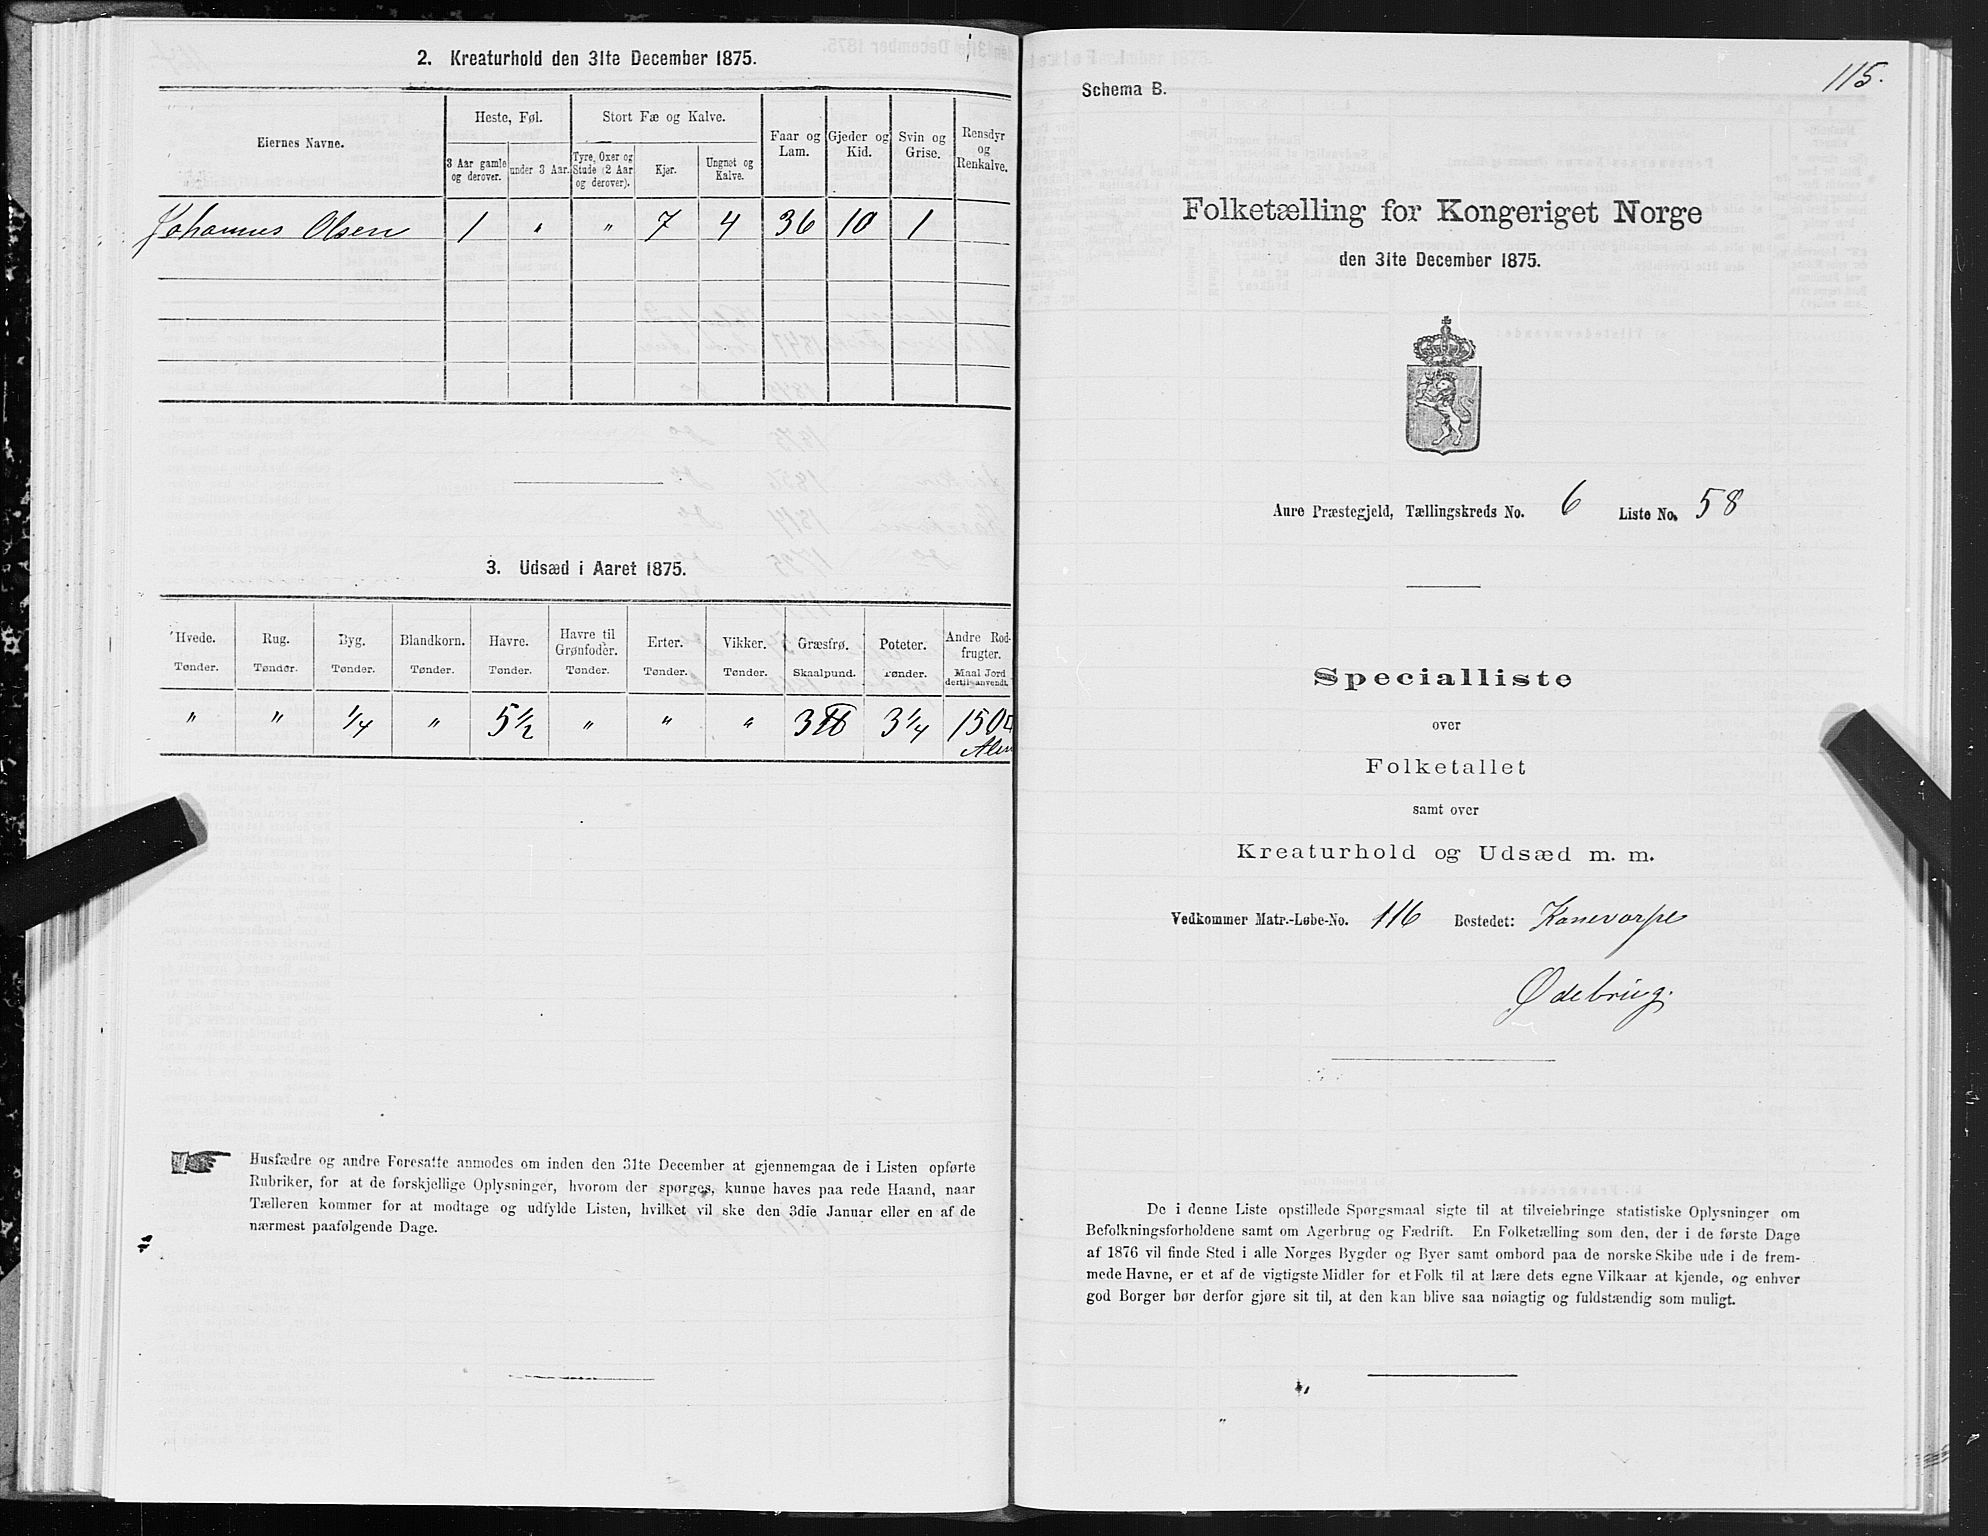 2. Kreaturhold den 31te December 1875.
Eiernes Navne.
Heste, Føl.
Stort Fæ og Kalve.
Faar og Lam.
Gjeder og Kid.
Svin og Grise.
Rensdyr og Renkalve.
3 Aar gamle og derover.
under 3 Aar.
Tyre, Oxer og Stude (2 Aar og derover).
Kjør.
Ungnøt og Kalve.
Johannes Olsen 1 " " 7 4 36 10 1
3. Udsæd i Aaret 1875.
Hvede. Rug. Byg. Blandkorn. Havre. Havre til Grønfoder. Erter. Vikker. Græsfrø. Poteter. Andre Rodfrugter.
Tønder. Tønder. Tønder. Tønder. Tønder. Tønder. Tønder. Tønder. Skaalpund. Tønder. Maal Jord dertil anvendt.
" " 1/4 " 5 1/2 " " " 3 ℔ 3 1/4 150 □ Alen
Husfædre og andre Foresatte anmodes om inden den 31te December at gjennemgaa de i Listen opførte
Rubriker, for at de forskjellige Oplysninger, hvorom der spørges, kunne haves paa rede Haand, naar
Tælleren kommer for at modtage og udfylde Listen, hvilket vil ske den 3die Januar eller en af de
nærmest paafølgende Dage.
115.
Schema B.
Folketælling for Kongeriget Norge
den 31te December 1875.
Aure Præstegjeld, Tællingskreds No. 6 Liste No. 58
Specialliste
over
Folketallet
samt over
Kreaturhold og Udsæd m. m.
Vedkommer Matr.-Løbe-No. 116 Bostedet: Kanevarpe
Ødebrug.
De i denne Liste opstillede Spørgsmaal sigte til at tilveiebringe statistiske Oplysninger om
Befolkningsforholdene samt om Agerbrug og Fædrift. En Folketælling som den, der i de første Dage
af 1876 vil finde Sted i alle Norges Bygder og Byer samt ombord paa de norske Skibe ude i de frem-
mede Havne, er et af de vigtigste Midler for et Folk til at lære dets egne Vilkaar at kjende, og enhver
god Borger bør derfor gjøre sit til, at den kan blive saa nøiagtig og fuldstændig som muligt.